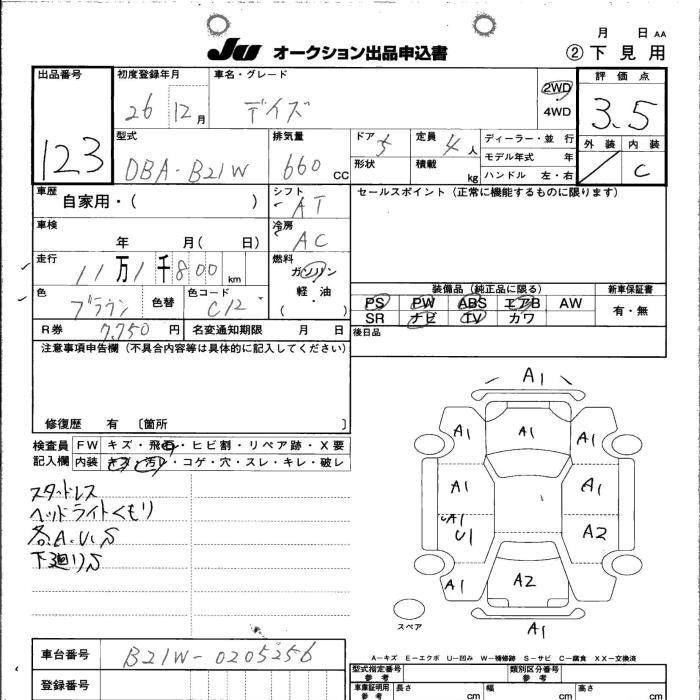 月 日 AA
JU オークション出品申込書
② 下見用
出品番号 初度登録年月 車名・グレード 2WD 4WD 評価点
123 26 12月 デイズ 3.5
型式 排気量 ドア 5 定員 4人 ディーラー・並行 外装 内装
DBA-B21W 660 CC 形状 積載 kg モデル年式 年 C
ハンドル 左・右
車歴 自家用・( ) シフト AT セールスポイント（正常に機能するものに限ります）
車検 年 月( 日) 冷房 AC
走行 11万1千800 km 燃料 ガソリン
軽・油
( )
装備品（純正品に限る） 新車保証書
色 ブラウン 色替 色コード C12 PS PW ABS エアB AW 有・無
SR ナビ TV カワ
R券 7,750円 名変通知期限 月 日 後日品
注意事項申告欄（不具合内容等は具体的に記入してください）
修復歴 有 〔箇所 〕
検査員 FW キズ・飛石・ヒビ割・リペア跡・X要
記入欄 内装 キズ・汚レ・コゲ・穴・スレ・キレ・破レ
スタッドレス
ヘッドライトくもり
各A.U.S
下廻りS
A1
A1 A1 A1
A1 A1
A1 U1 A2
A1 A2
A1
スペア
A－キズ E－エクボ U－凹み W－補修跡 S－サビ C－腐食 XX－交換済
車台番号 B21W-0205256
型式指定番号 参考 類別区分番号 参考
登録番号
車庫証明用 参考 長さ cm 幅 cm 高さ cm